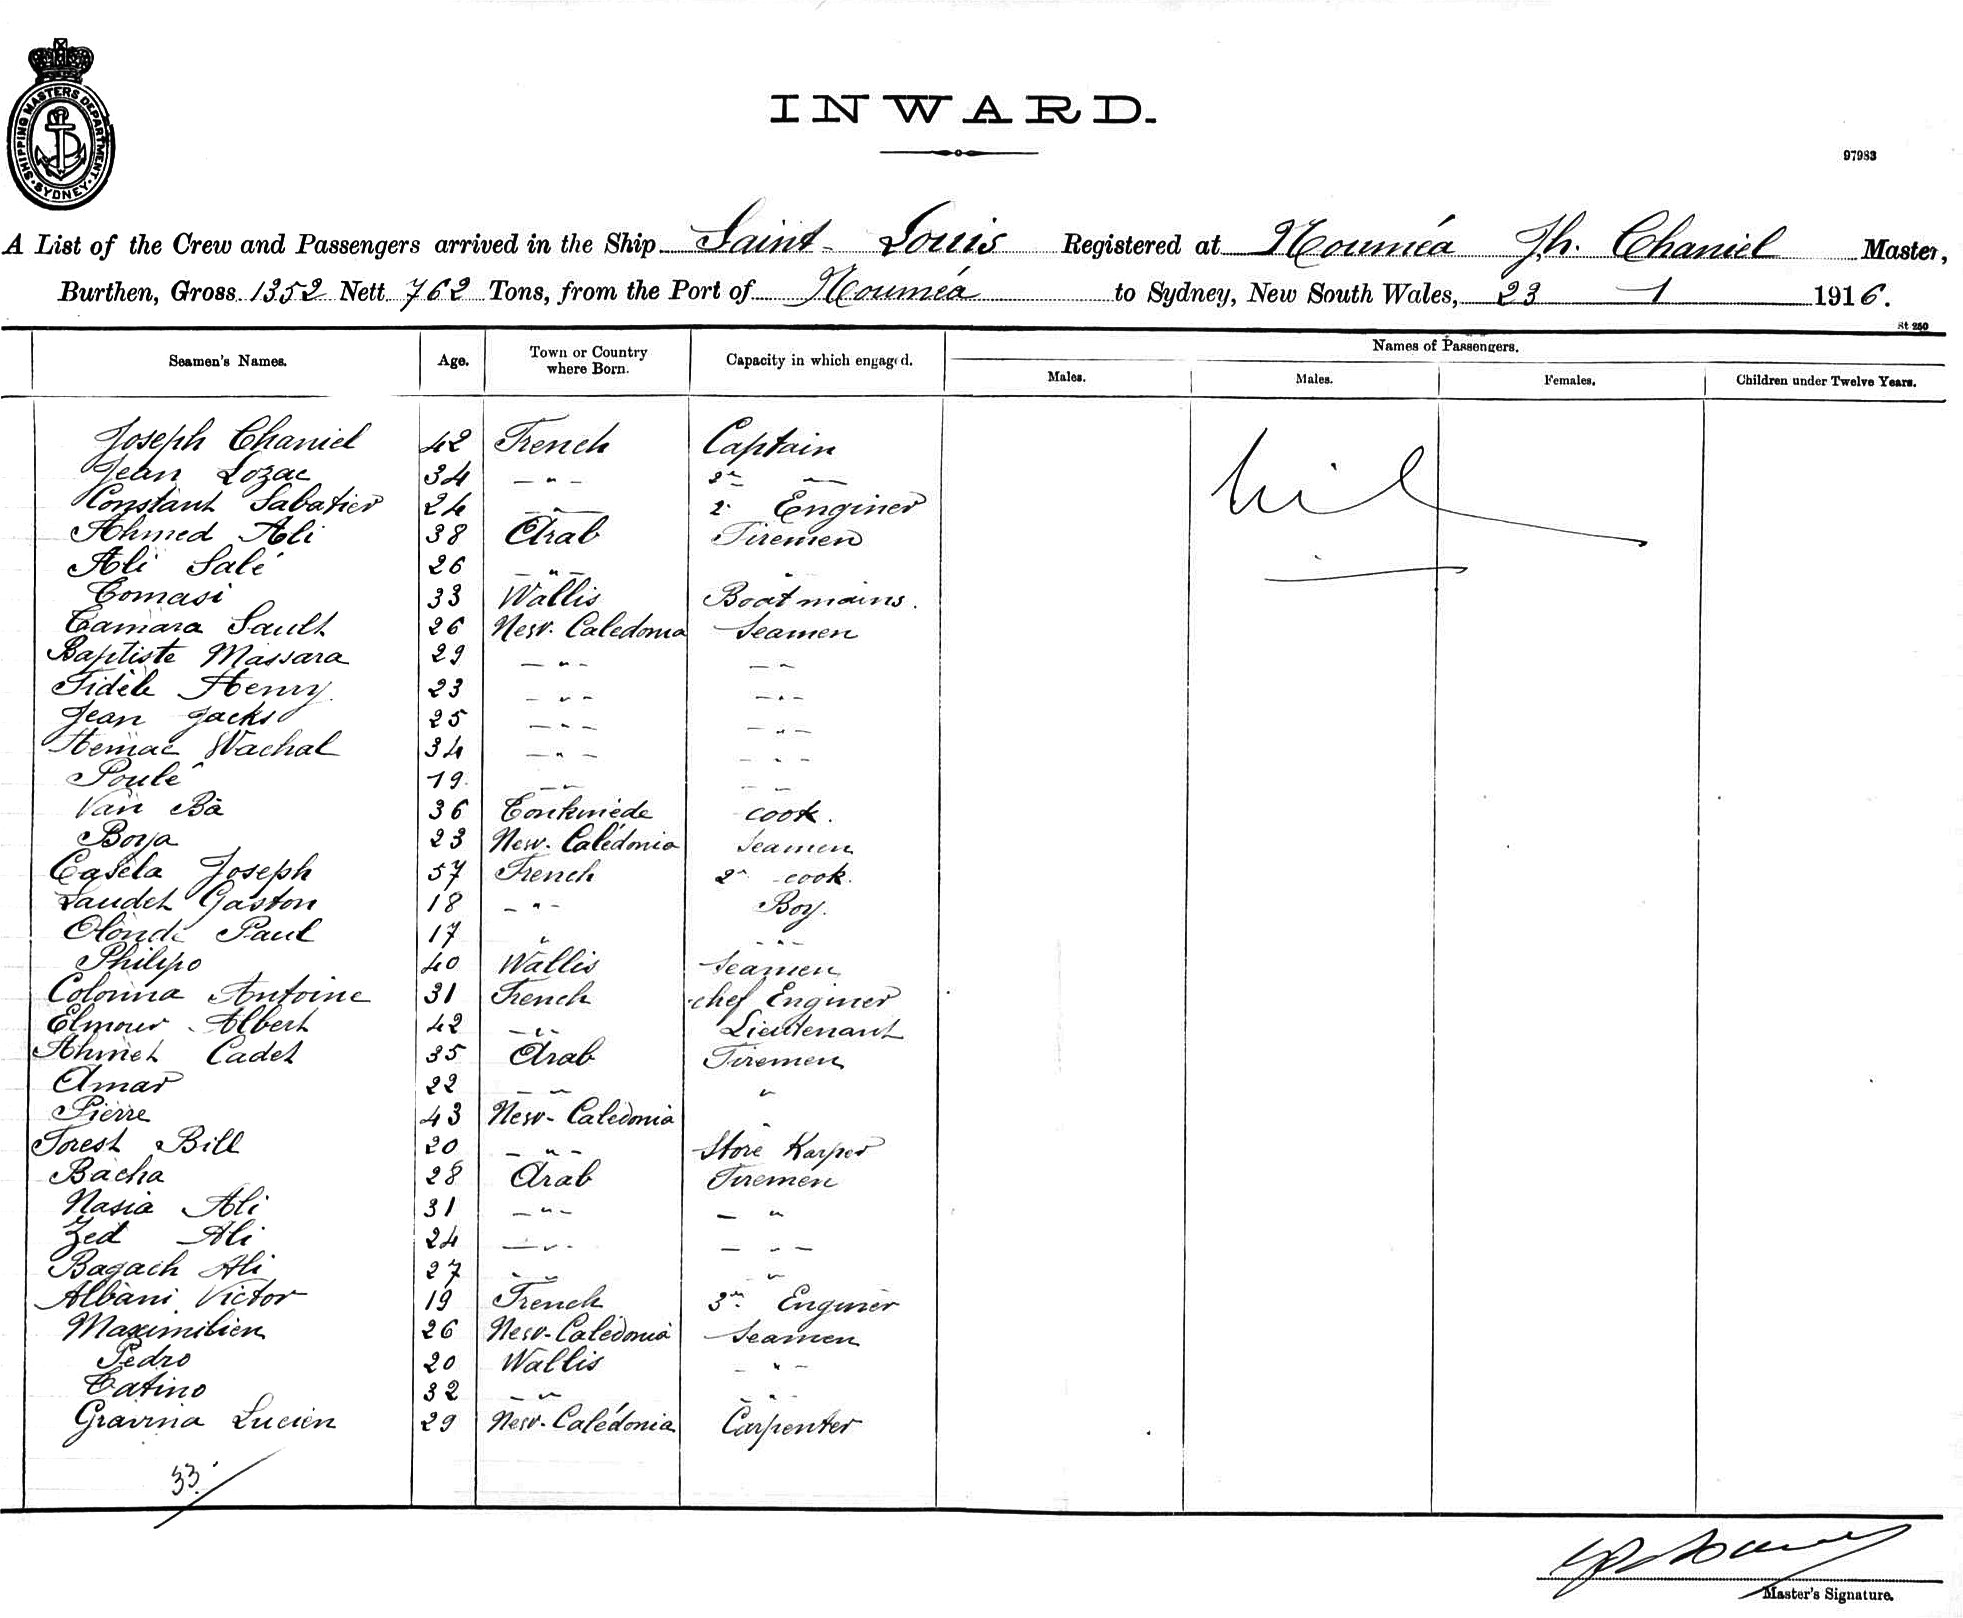 SHIPPING MASTERS DEPARTMENT · SYDNEY ·
INWARD.
97983
A List of the Crew and Passengers arrived in the Ship Saint-Louis Registered at Nouméa Jh. Chaniel Master,
Burthen, Gross 1352 Nett 762 Tons, from the Port of Nouméa to Sydney, New South Wales, 23 1 1916.
St 250
Seamen's Names. Age. Town or Country where Born. Capacity in which engaged. Names of Passengers.
Males. Males. Females. Children under Twelve Years.
Joseph Chaniel 42 French Captain
nil
Jean Lozac 34 - " - 2n —
Constant Sabatier 24 - " - 2n Enginer
Ahmed Ali 38 Arab Firemen
Ali Salé 26 - " - "
Tomasi 33 Wallis Boatmains.
Camara Sault 26 New. Caledonia Seamen
Baptiste Massara 29 - " - - " -
Fidèle Henry 23 - " - - " -
Jean Jacks 25 - " - - " -
Wachal 34 - " - - " -
Poulé 19 - " - - " -
Van Ba 36 cook.
Boya 23 New-Calédonia Seamen
Casela Joseph 57 French 2n cook.
Laudet Gaston 18 - " - Boy.
Paul 17 " - " -
Philipo 40 Wallis Seamen
Colonna Antoine 31 French chef Enginer
Elmour Albert 42 - " - Lieutenant
Ahmet Cadet 35 Arab Firemen
Amar 22 - " - "
Pierre 43 New-Caledonia "
Forest Bill 20 - " - Store Karper
Bacha 28 Arab Firemen
Nasia Ali 31 - " - - "
Zed Ali 24 - " - - " -
Bagach Ali 27 - " - "
Albani Victor 19 French 3n Enginer
Maximilien 26 New-Calédonia Seamen
Pedro 20 Wallis - " -
Tatino 32 - " - " -
Gravina Lucien 29 New-Calédonia Carpenter
33.
Master's Signature.